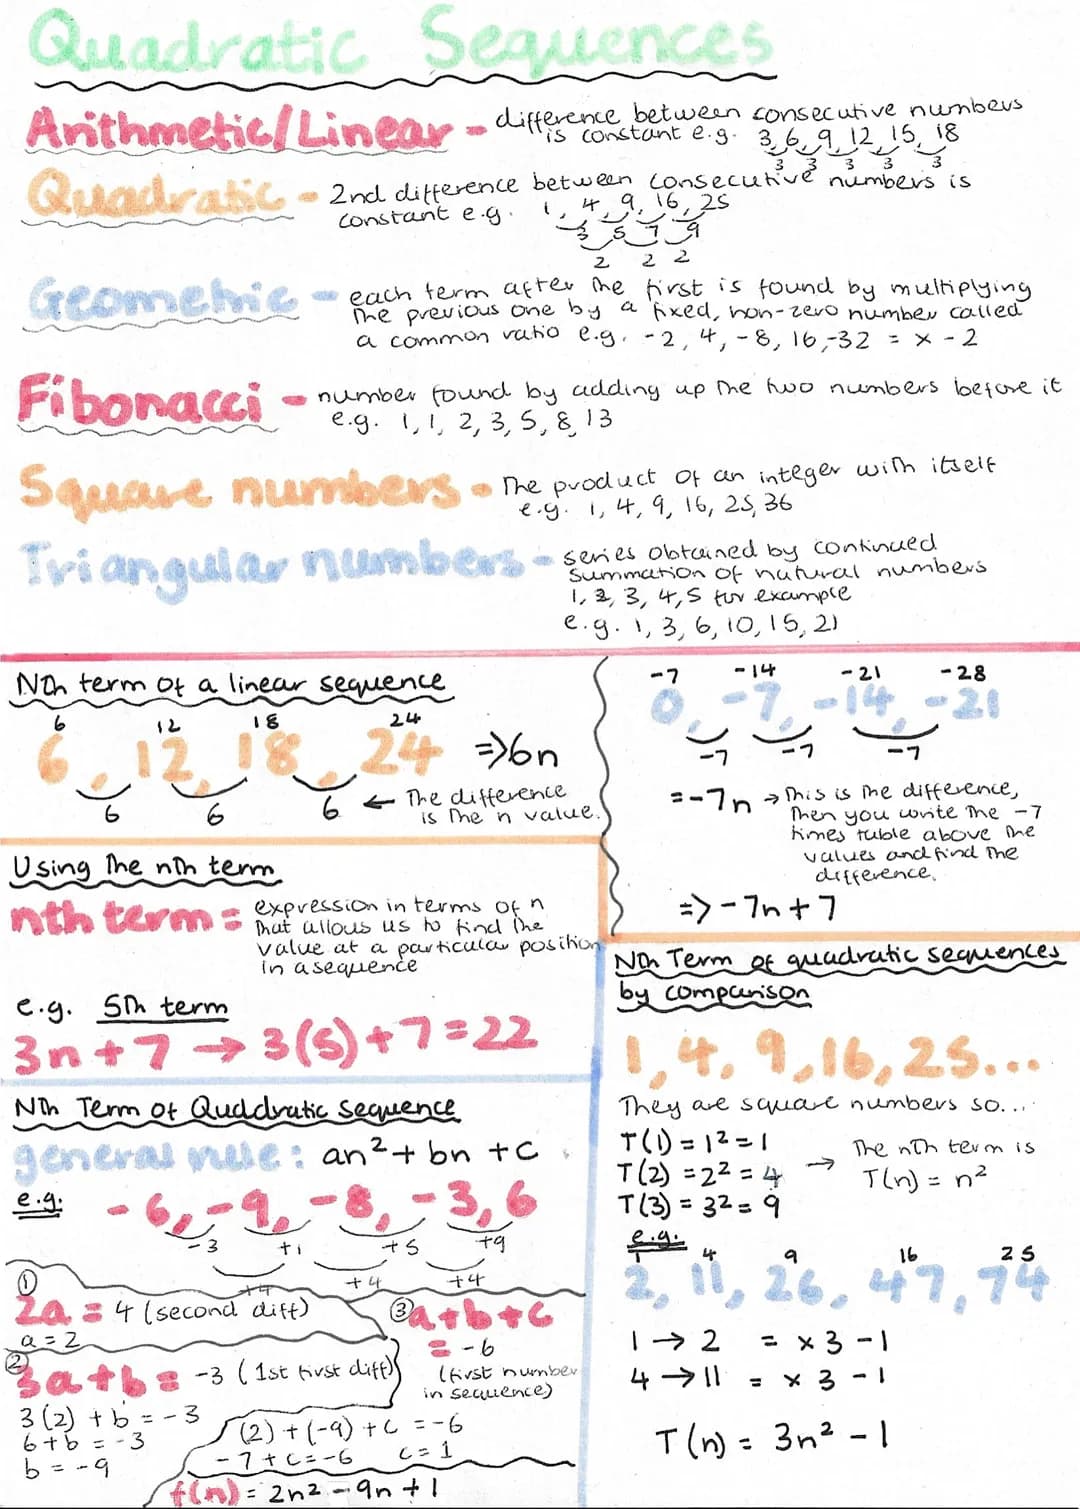 Quadratic Sequences
Arithmetic/Linear - difference between consecutive numbers
is constant e.g. 3, 6, 9, 12, 15, 18
3 3 3 3 3
Quadratic - 2nd difference between consecutive numbers is
constant e.g. 1, 4, 9, 16, 25
3 5 7 9
2 2 2
Geometric - each term after the first is found by multiplying
the previous one by a fixed, non-zero number called
a common ratio e.g. -2, 4, -8, 16, -32 = x - 2
Fibonacci - number found by adding up the two numbers before it
e.g. 1, 1, 2, 3, 5, 8, 13
Square numbers - The product of an integer with itself
e.g. 1, 4, 9, 16, 25, 36
Triangular numbers - series obtained by continued
summation of natural numbers
1, 2, 3, 4, 5 for example
e.g. 1, 3, 6, 10, 15, 21
Nth term of a linear sequence
6 12 18 24
6, 12, 18, 24 => 6n
6 6 6 ← The difference
is the n value.
-7 -14 -21 -28
0, -7, -14, -21
-7 -7 -7
= -7n → This is the difference,
then you write the -7
times table above the
values and find the
difference.
=> -7n + 7
Using the nth term
nth term = expression in terms of n
that allous us to find the
value at a particular position
in a sequence
e.g. 5th term
3n + 7 → 3(5) + 7 = 22
Nth Term of Quadratic Sequence
general rule: an² + bn + c
e.g. -6, -9, -8, -3, 6
-3 +1 +5 +9
+4 +4 +4
① 2a = 4 (second diff)
a = 2
② 3a + b = -3 (1st first diff)
3(2) + b = -3
6 + b = -3
b = -9
③ a + b + c
= -6
(first number
in sequence)
(2) + (-9) + c = -6
-7 + c = -6 c = 1
f(n) = 2n² - 9n + 1
Nth Term of quadratic sequences
by comparison
1, 4, 9, 16, 25...
They are square numbers so...
T(1) = 1² = 1
T(2) = 2² = 4
T(3) = 32 = 9
→ The nth term is
T(n) = n²
e.g.
1 4 9 16 25
2, 11, 26, 47, 74
1 → 2 = x 3 - 1
4 → 11 = x 3 - 1
T(n) = 3n² - 1